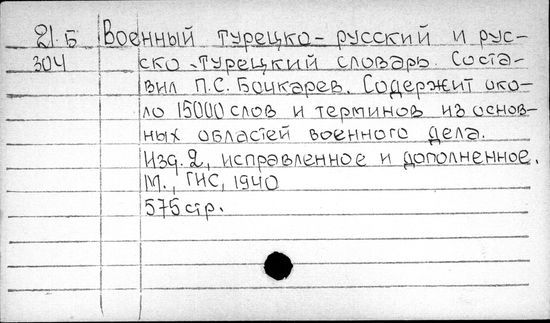 21.Б Военный турецко-русский и рус-
304 ско-турецкий словарь. Соста-
вил П.С. Бочкарев. Содержит око-
ло 15000 слов и терминов из основ-
ных областей военного дела.
Изд. 2, исправленное и дополненное.
М., ГИС, 1940
575 стр.